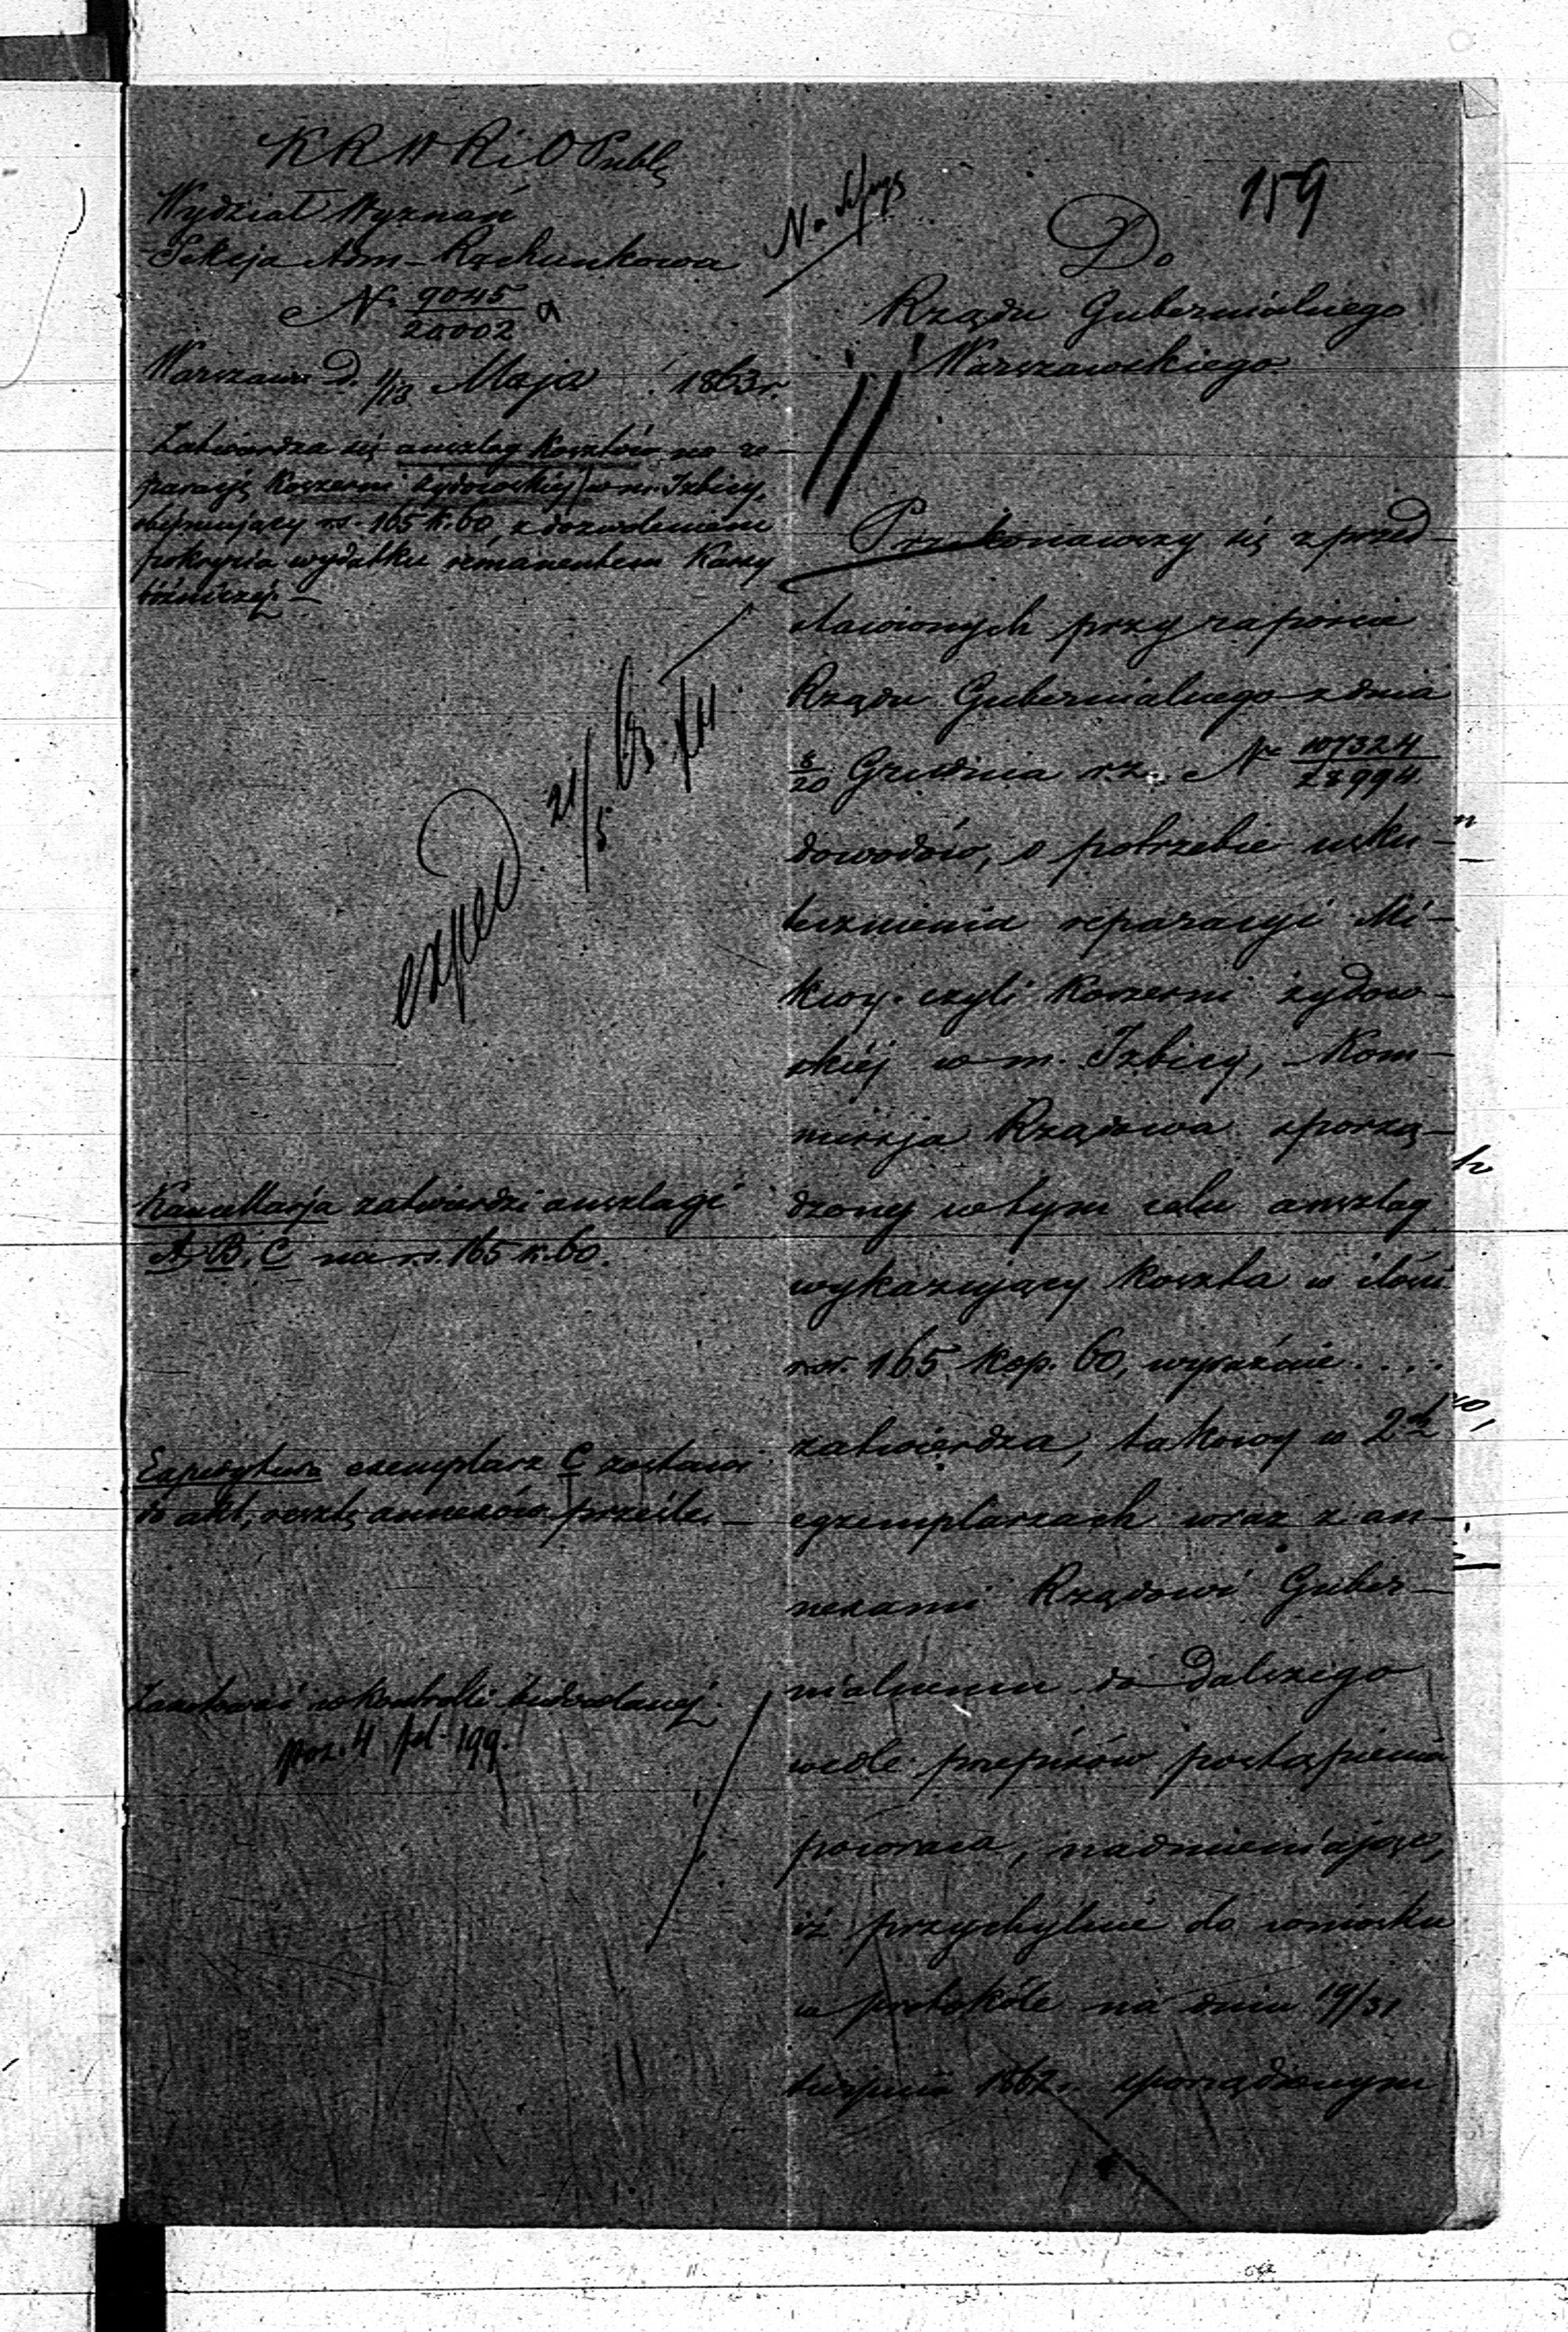 159
K R W R i O Publ.
Wydział Wyznań
Sekcja Adm-Rachunkowa
N. 9045/20002
Warszawa D. 1/13 Maja 1863 r.
Zatwierdza się anszlag kosztów na re-
paracyę Koszerni żydowskiej w m. Izbicy,
obejmujący rs. 165 k. 60, z dozwoleniem
pokrycia wydatku remanentem Kassy
bóżniczej. —
exped 21/5 63
Kancellarja zatwierdzi anszlagi
A. B. C na rs. 165 k. 60.
Expedytura exemplarz C zostawi
do akt, resztę annexów prześle. —
Zanotować w kontrolli budowlanej.
poz. 4 fol. 199.
Do
Rządu Gubernialnego
Warszawskiego
Przekonawszy się z przed-
stawionych przy raporcie
Rządu Gubernialnego z dnia
8/20 Grudnia r.z. N 107324/28994
dowodów, o potrzebie usku-
tecznienia reparacyi Mi-
kwy czyli Koszerni żydow-
skiéj w m. Izbicy, Kom-
missja Rządowa sporzą-
dzony w tym celu anszlag
wykazujący koszta w ilości
rsr. 165 kop. 60, wyraźnie . . . .
zatwierdza, takowy w 2ch
egzemplarzach wraz z an-
nexami Rządowi Guber-
nialnemu do dalszego
wedle przepisów postąpienia
powraca, nadmieniając,
iż przychylnie do wniosku
w protokóle na dniu 19/31
Sierpnia 1862 r. sporządzonym